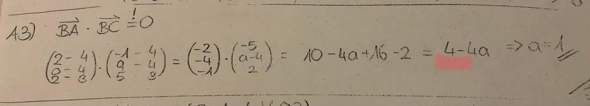 13) BA · BC != 0
(2 - 4, 0 - 4, 2 - 3) · (-1 - 4, a - 4, 5 - 3) = (-2, -4, -1) · (-5, a-4, 2) = 10 - 4a + 16 - 2 = 4 - 4a => a = 1